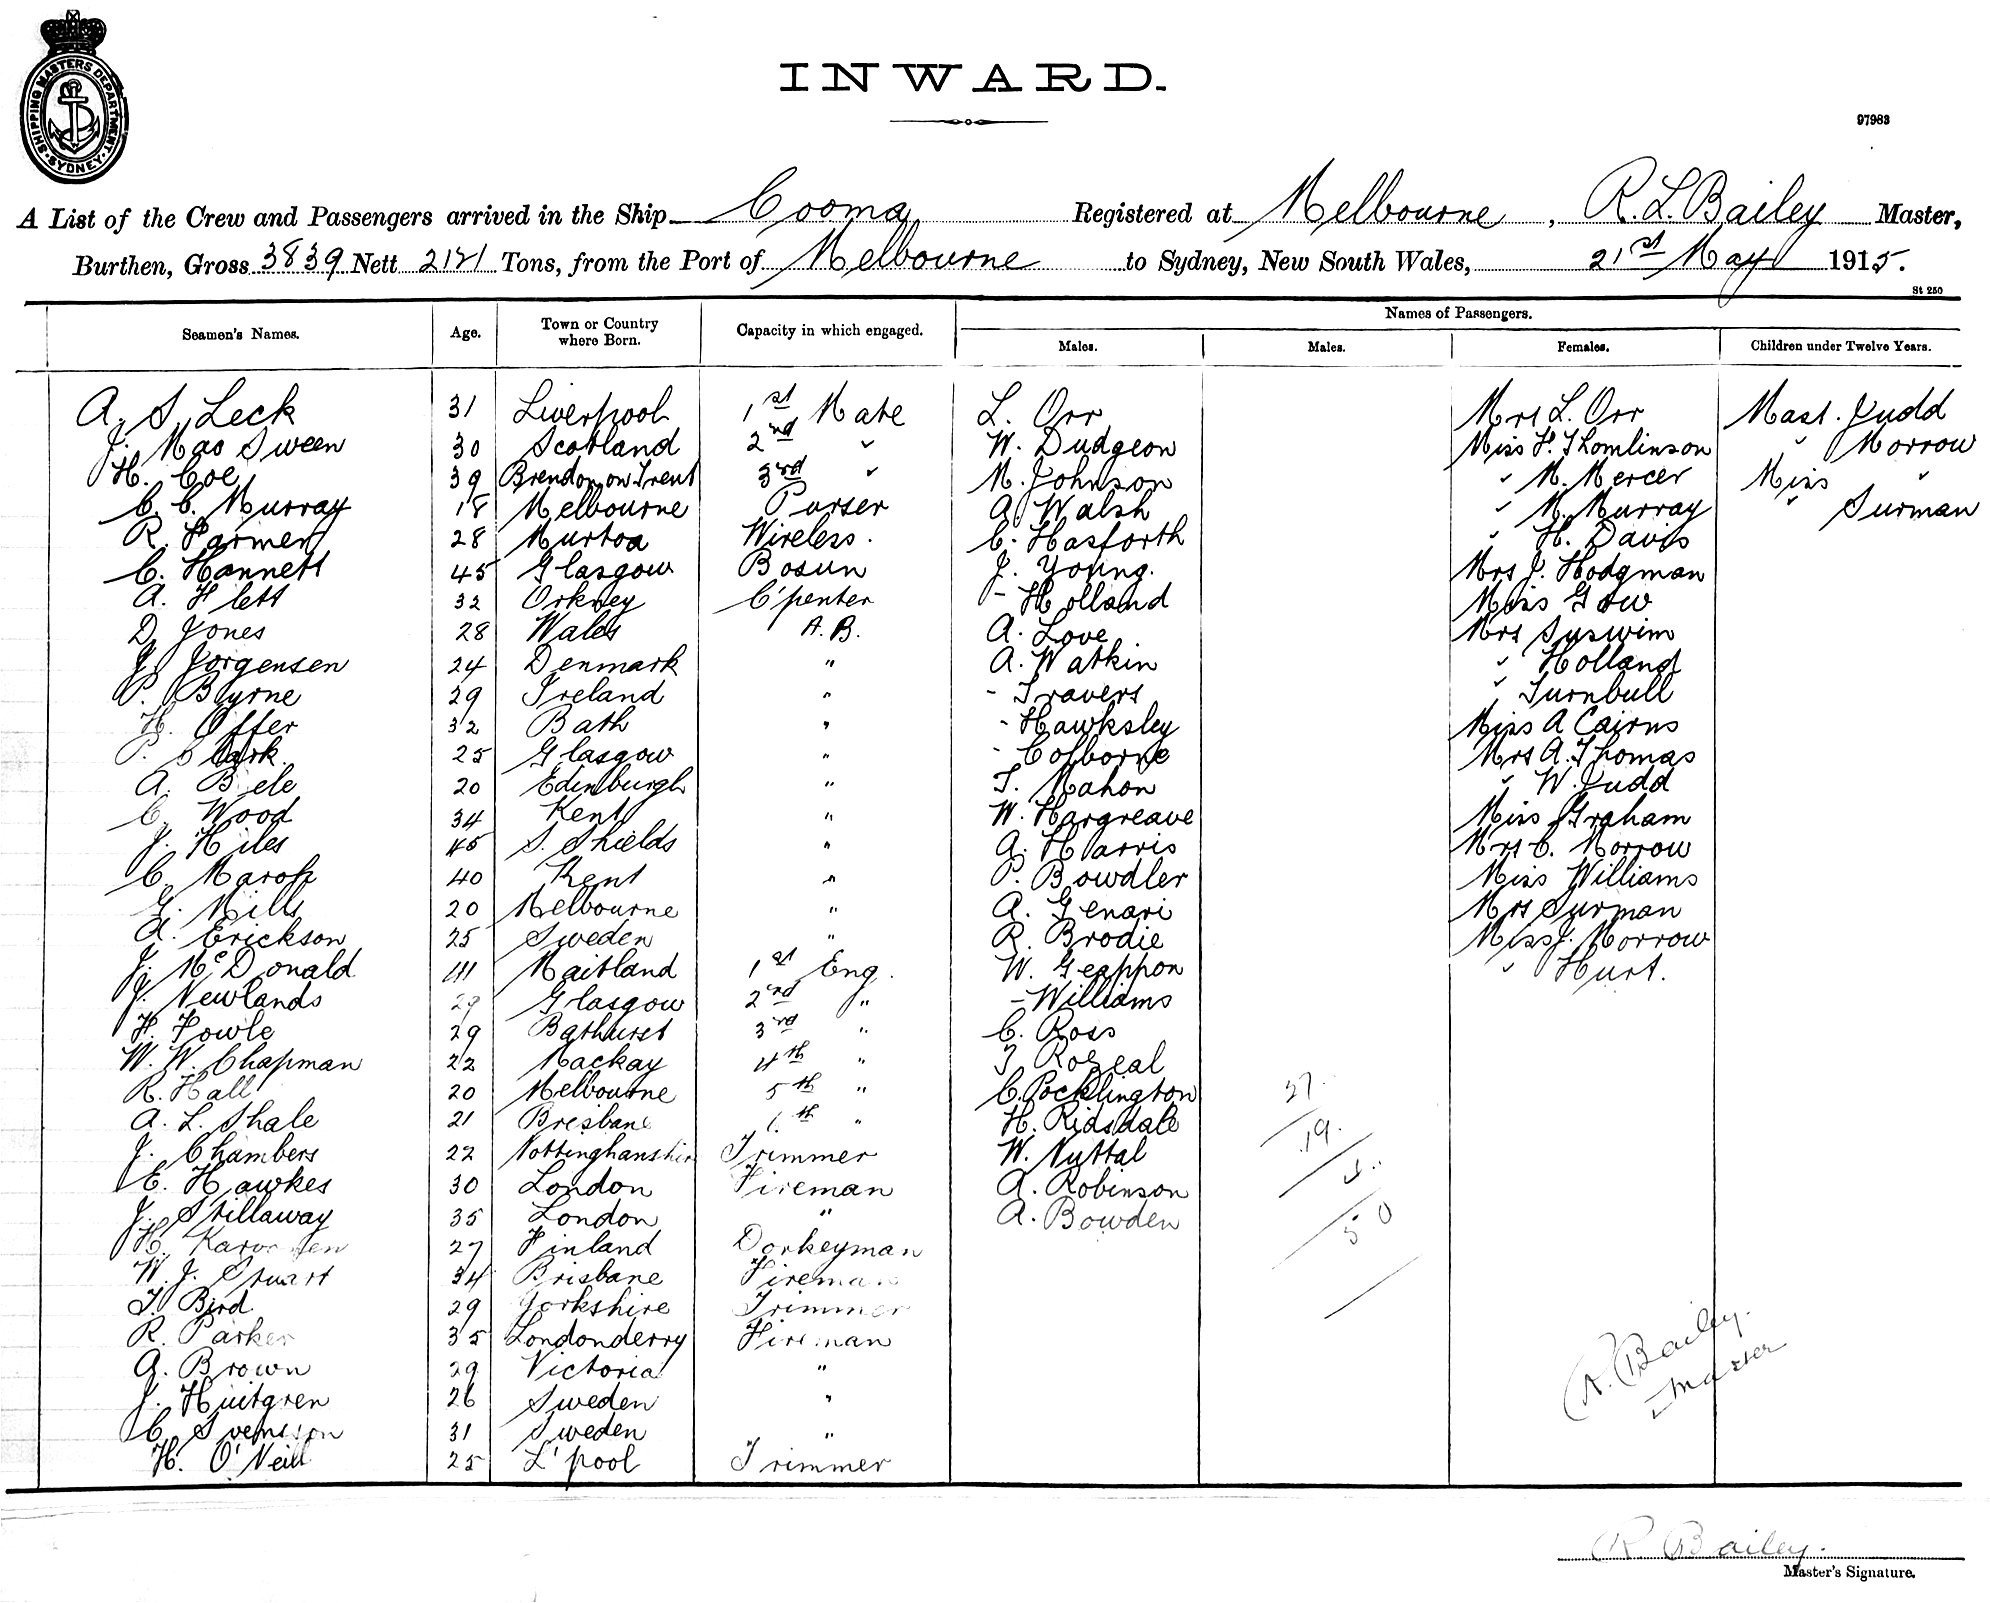 SHIPPING MASTERS DEPARTMENT. SYDNEY
INWARD.
97983
A List of the Crew and Passengers arrived in the Ship Cooma Registered at Melbourne, R. L. Bailey Master,
Burthen, Gross 3839 Nett 2121 Tons, from the Port of Melbourne to Sydney, New South Wales, 21st May 1915.
St 250
Seamen's Names. Age. Town or Country where Born. Capacity in which engaged. Names of Passengers.
Males. Males. Females. Children under Twelve Years.
A. S. Leck 31 Liverpool 1st Mate L. Orr Mrs L. Orr Mast. Judd
J. Mac Sween 30 Scotland 2nd " W. Dudgeon Miss F. Thomlinson " Morrow
H. Coe 39 Brendon on Trent 3rd " M. Johnson " M. Mercer Miss "
C. C. Murray 18 Melbourne Purser A. Walsh " M. Murray " Surman
R. Farmer 28 Murtoa Wireless. C. Hasforth " H. Davis
C. Hannett 45 Glasgow Bosun J. Young. Mrs J. Hodgman
A. Flett 32 Orkney C'penter - Holland Miss Gow
D. Jones 28 Wales A.B. A. Love Mrs Suswim
J. Jorgensen 24 Denmark " A. Watkin " Holland
P. Byrne 29 Ireland " - Travers " Turnbull
H. Offer 32 Bath " - Hawksley Miss A Cairns
P. Clark 25 Glasgow " - Colborne Mrs A. Thomas
A. Bele 20 Edinburgh " T. Mahon " W. Judd
C. Wood 34 Kent " W. Hargreave Miss Graham
J. Hiles 45 S. Shields " A. Harris Mrs C. Morrow
C. 40 Kent " P. Bowdler Miss Williams
G. Mills 20 Melbourne " A. Genari Mrs Surman
A. Erickson 25 Sweden " R. Brodie Miss J. Morrow
J. McDonald 41 Maitland 1st Eng. W. Geappon " Hurt.
J. Newlands 29 Glasgow 2nd " - Williams
F. Fowle 29 Bathurst 3rd " C. Ross
W. W. Chapman 22 Mackay 4th " T
R. Hall 20 Melbourne 5th " C. Pocklington
A. L. Shale 21 Brisbane 6th " H. Ridsdale
J. Chambers 22 Nottinghanshire Trimmer W. Nuttal
E. Hawkes 30 London Fireman A. Robinson
J. Stillaway 35 London " A. Bowden
H. 27 Finland Donkeyman
W. J. Stuart 34 Brisbane Fireman
T. Bird 29 Yorkshire Trimmer
R. Parker 35 Londonderry Fireman
A. Brown 29 Victoria "
J. Hultgren 26 Sweden "
C. Svensson 31 Sweden "
H. O'Neill 25 L'pool Trimmer
27.
19.
50
R. Bailey.
Master
R Bailey.
Master's Signature.